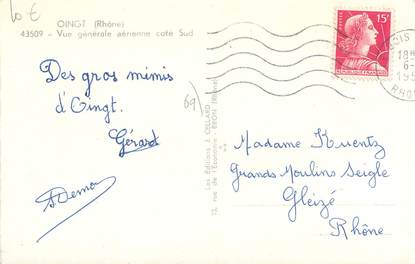 10 €
OINGT (Rhône)
43509 - Vue générale aérienne coté Sud
Des gros mimis
d'Oingt.
Gérard
69
Les Editions J. CELLARD
13, rue de l'Economie - BRON (Rhône)
15F
POSTES
REPUBLIQUE FRANÇAISE
OIS
18H
6-
195
RHO
Madame Kuentz
Grands Moulins Seigle
Gleizé
Rhône